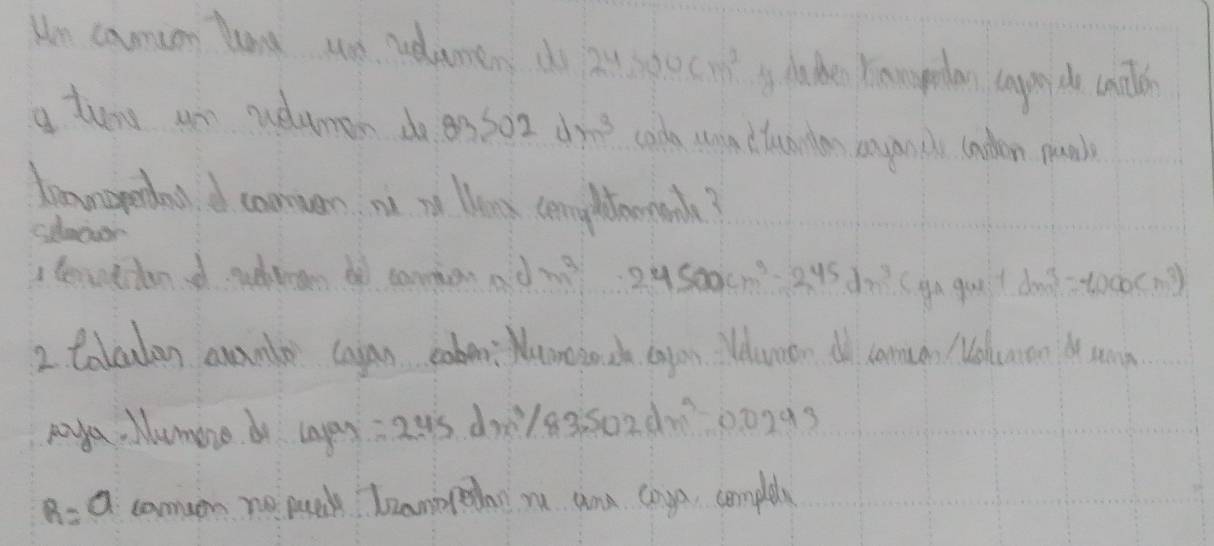 Un camion tiene un volumen de 24.500cm³ y deben transportar cajas de cartón
q tiene un volumen de 83502 dm³ cada una ¿Cuantas cajas de carton puede
transportar el camion si se llena completamente?
solucion
1 Convertir el volumen del camion a dm³ 24500cm³ = 2,45 dm³ (ya que 1 dm³ = 1000cm³)
2. Calcular cuantas cajas caben: Numero de cajas = Volumen del camion / Volumen de una
caja. Numero de cajas = 2.45 dm³/83.502dm³ = 0.0293
R = a camion no puede transportar ni una caja completa